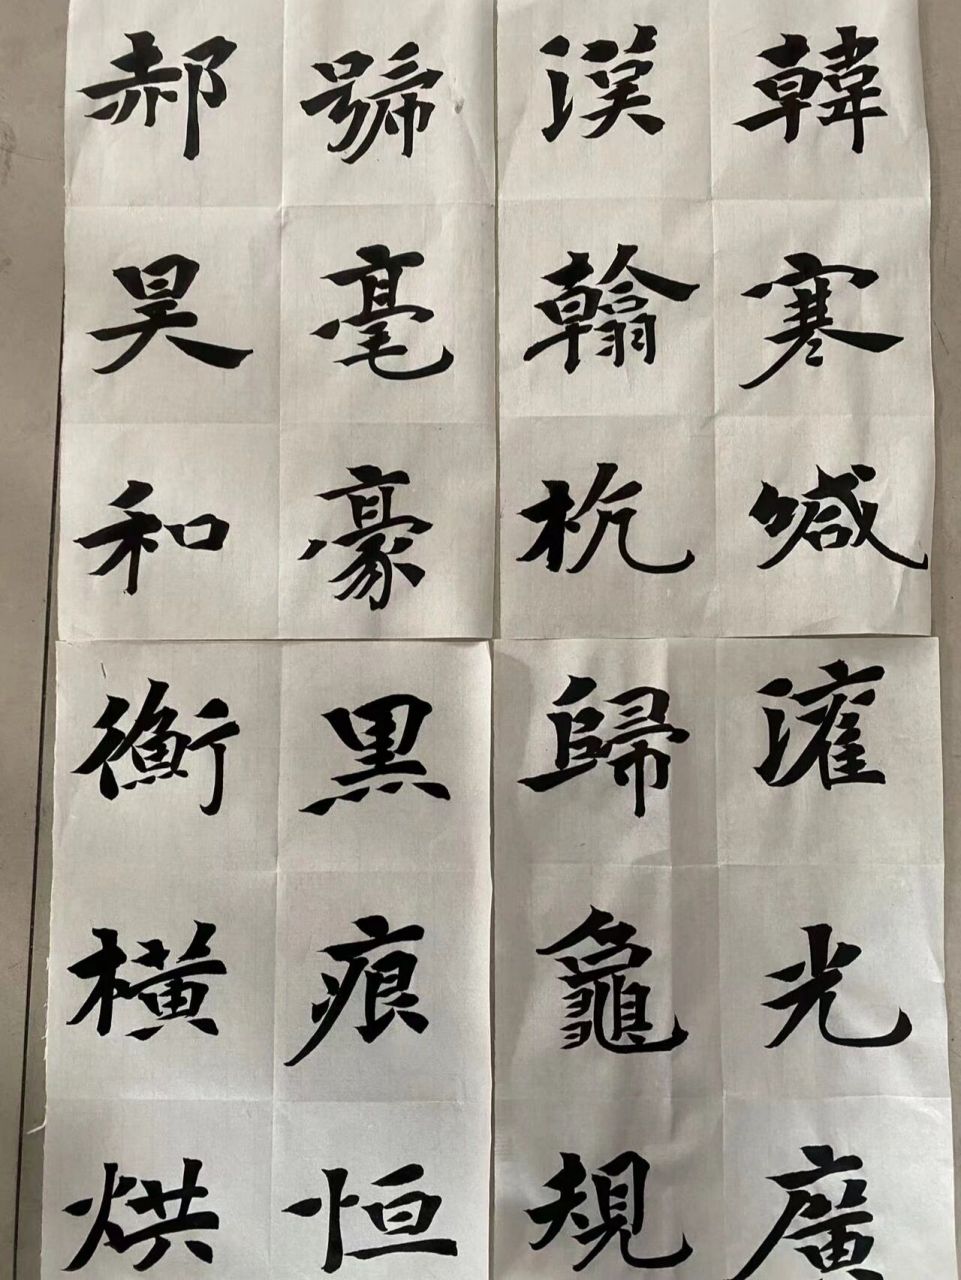 韓寒喊
漢翰杭
號毫豪
郝昊和
灌光廣
歸龜規
黑痕恒
衡橫烘